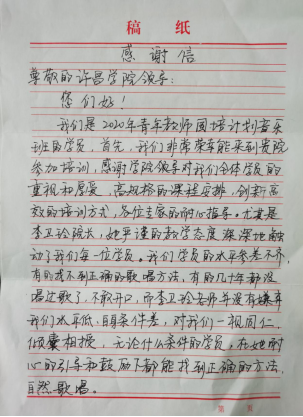 稿 纸
感谢信
尊敬的许昌学院领导：
您们好！
我们是2020年青年教师国培计划音乐
班的学员，首先，我们非常荣幸能来到贵院
参加培训，感谢学院领导对我们全体学员的
重视和厚爱，高规格的课程安排，创新高
效的培训方式，各位专家的耐心指导。尤其是
李卫玲院长，她严谨的教学态度深深地触
动了我们每一位学员。我们学员的水平参差不齐，
有的找不到正确的歌唱方法，有的几十年都没
唱过歌了，不敢开口，而李卫玲老师并没有嫌弃
我们水平低，自身条件差，对我们一视同仁，
倾囊相授，无论什么条件的学员，在她耐
心的引导和鼓励下都能找到正确的方法，
自然歌唱。
第 页